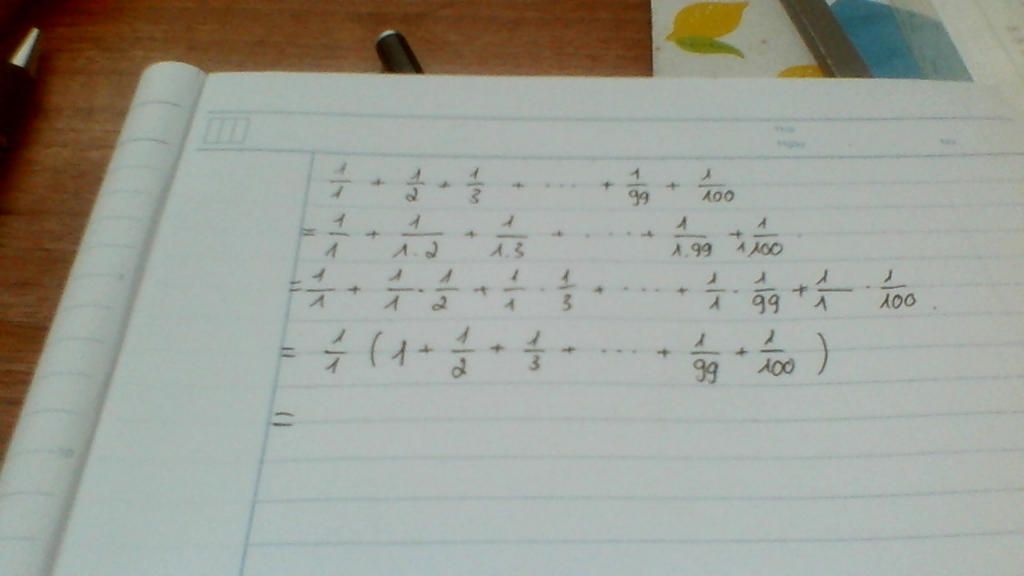 1/1 + 1/2 + 1/3 + .... + 1/99 + 1/100
= 1/1 + 1/1.2 + 1/1.3 + ..... + 1/1.99 + 1/1.100
= 1/1 + 1/1 . 1/2 + 1/1 . 1/3 + .... + 1/1 . 1/99 + 1/1 . 1/100 .
= 1/1 ( 1 + 1/2 + 1/3 + .... + 1/99 + 1/100 )
=